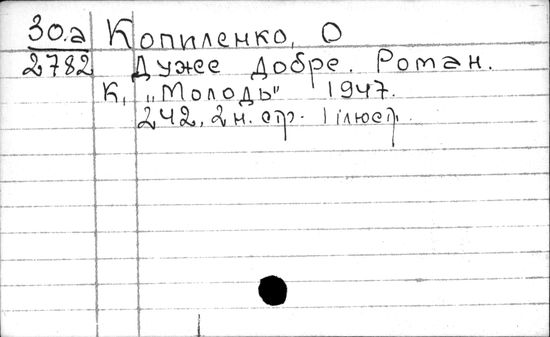 30.а Копиленко, О
2782 Дуже добре. Роман.
К, „Молодь" 1947.
242, 2 н. стр. 1 ілюстр.